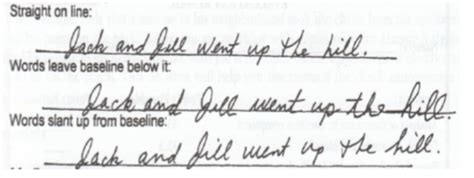 Straight on line:
Jack and Jill went up the hill.
Words leave baseline below it:
Jack and Jill went up the hill.
Words slant up from baseline:
Jack and Jill went up the hill.